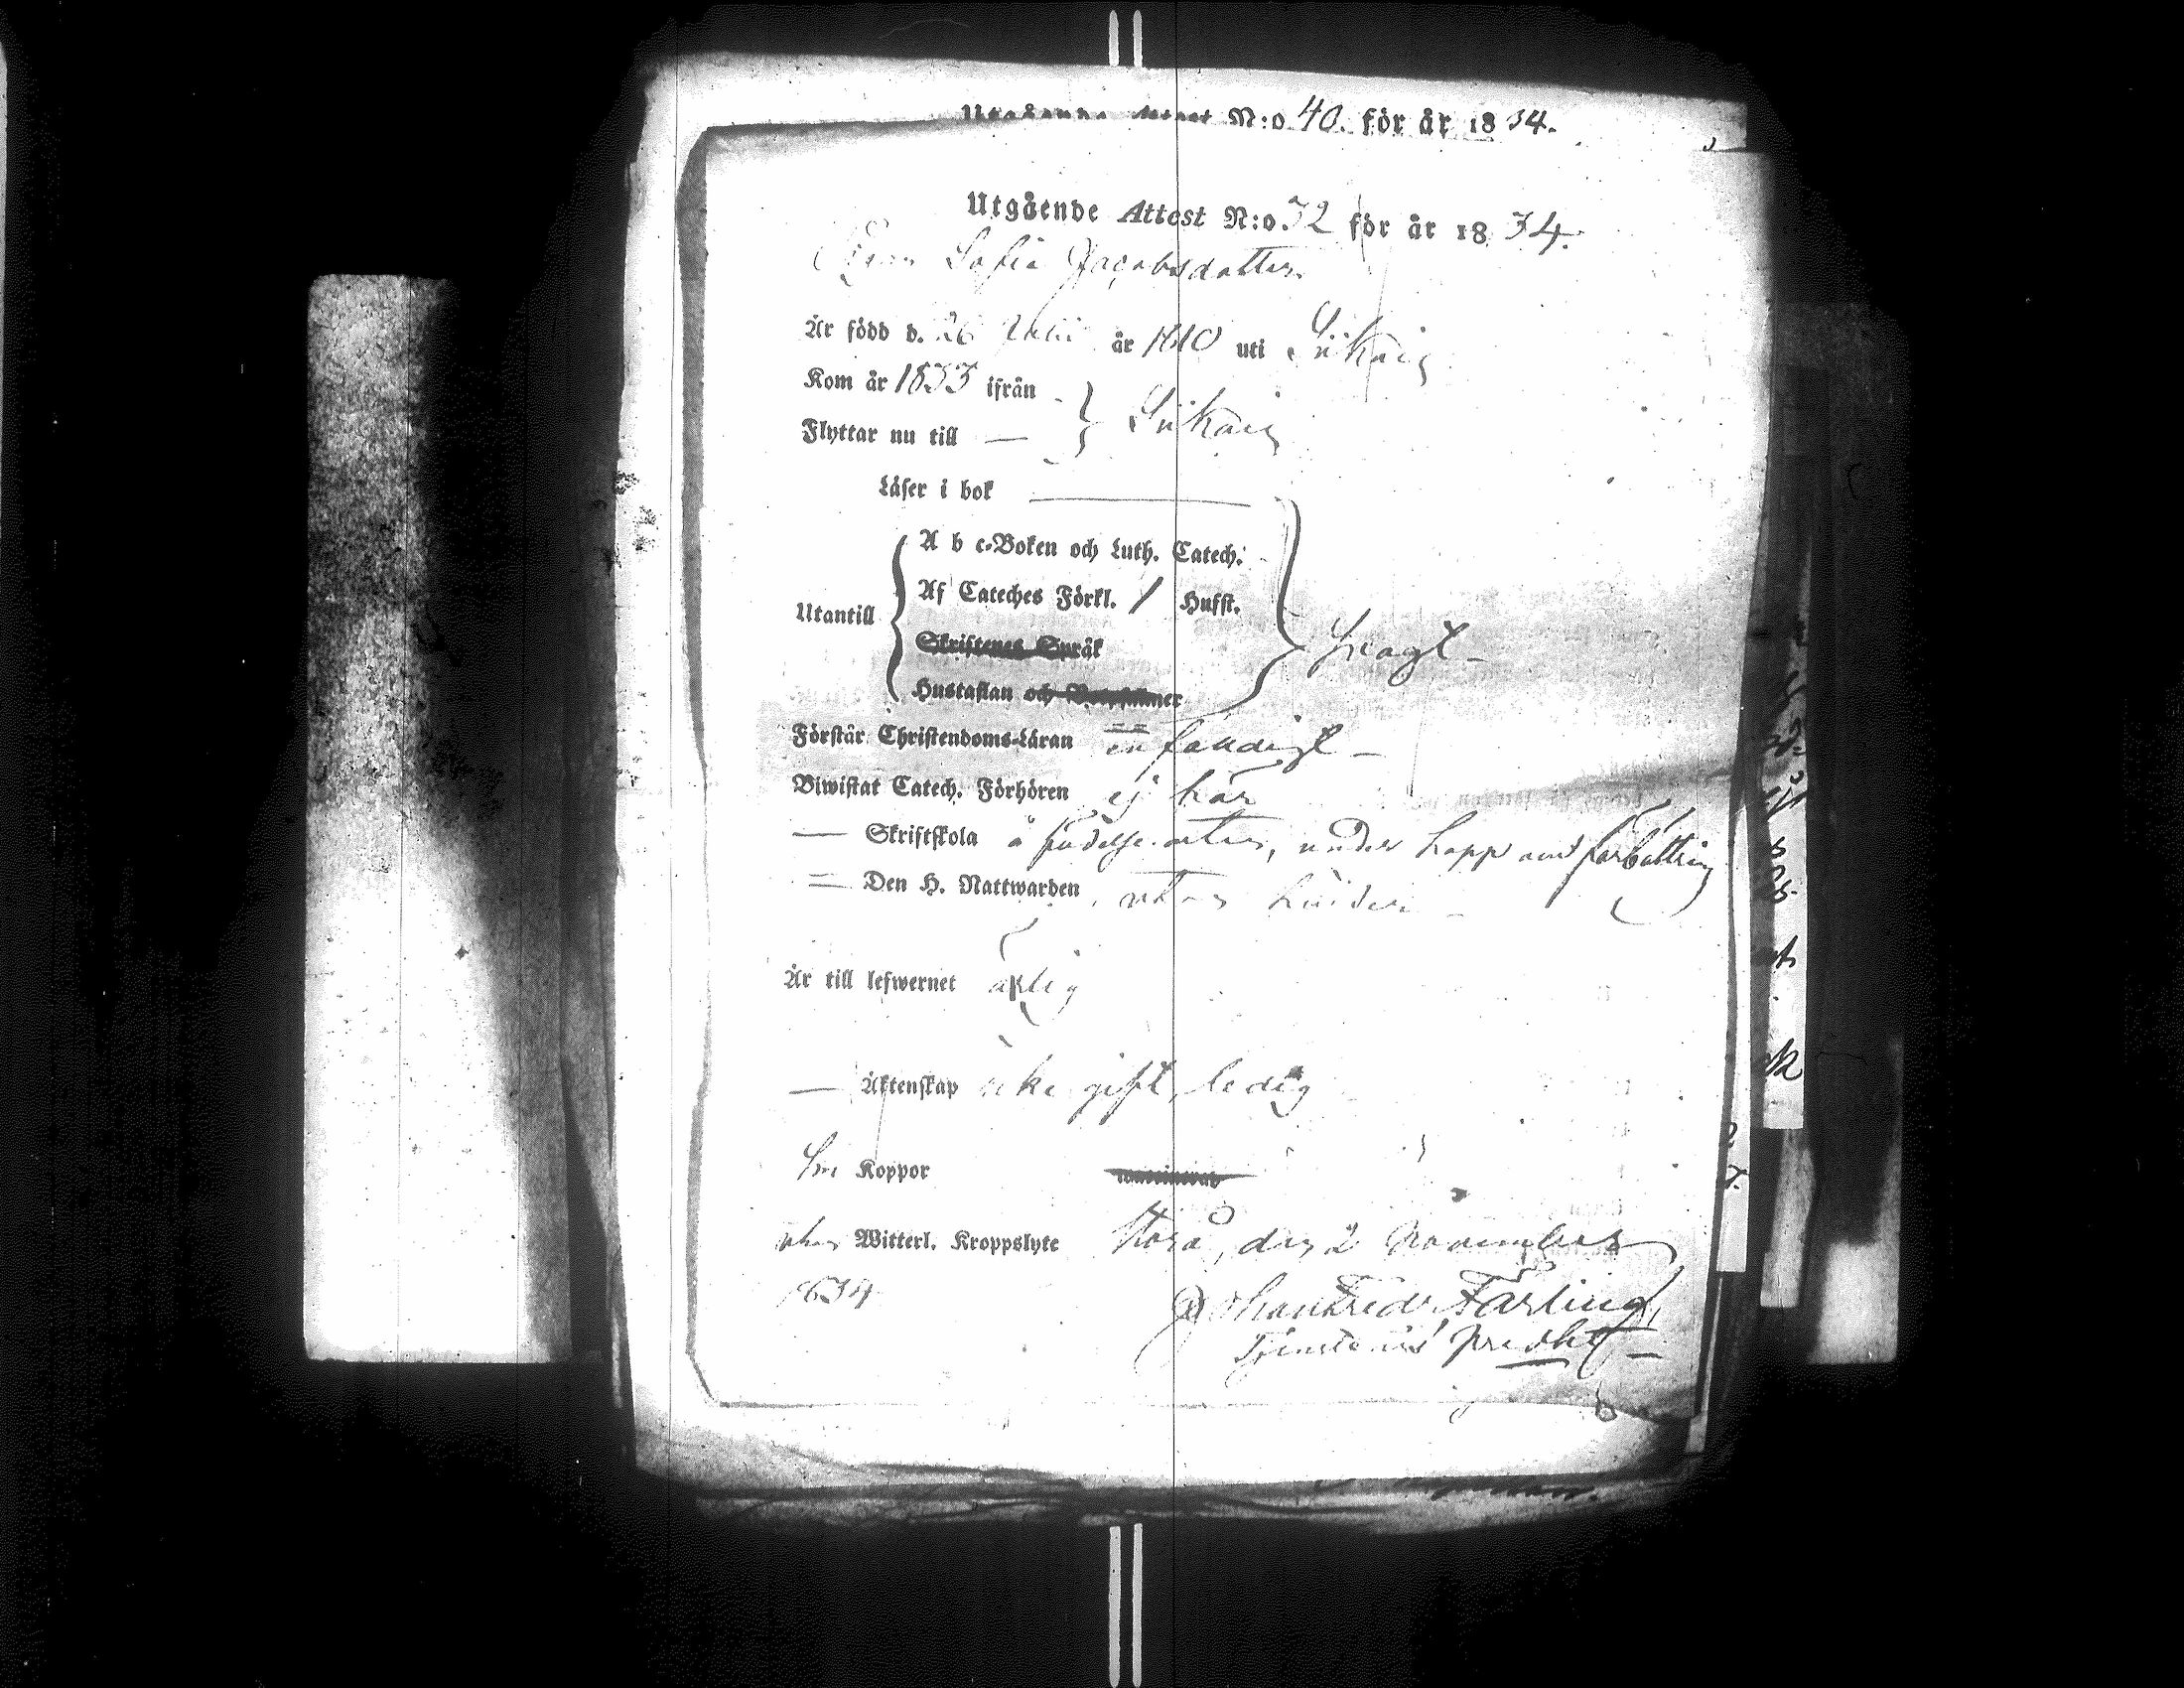 N:o 40. för år 1834.
Utgående Attest N:o 32 för år 1834.
Sofia Jacobsdotter
År född d. 26 år 1810 uti
Kom år 1833 ifrån
Flyttar nu till —
Läser i bok
A b c-Boken och Luth. Catech.
Af Cateches Förkl. / Hufst.
Utantill
Skriftenes Språk
Hustaflan och
Förstår Christendoms-Läran enfaldigt —
Biwistat Catech. Förhören ej här
— Skriftskola å födelseorten, under hopp om förbättring
— Den H. Nattwarden, utan hinder —
Är till lefwernet ärlig
— Äktenskap icke gift, ledig
Koppor
utan Witterl. Kroppslyte den 2 November
1834
Färling
predikt